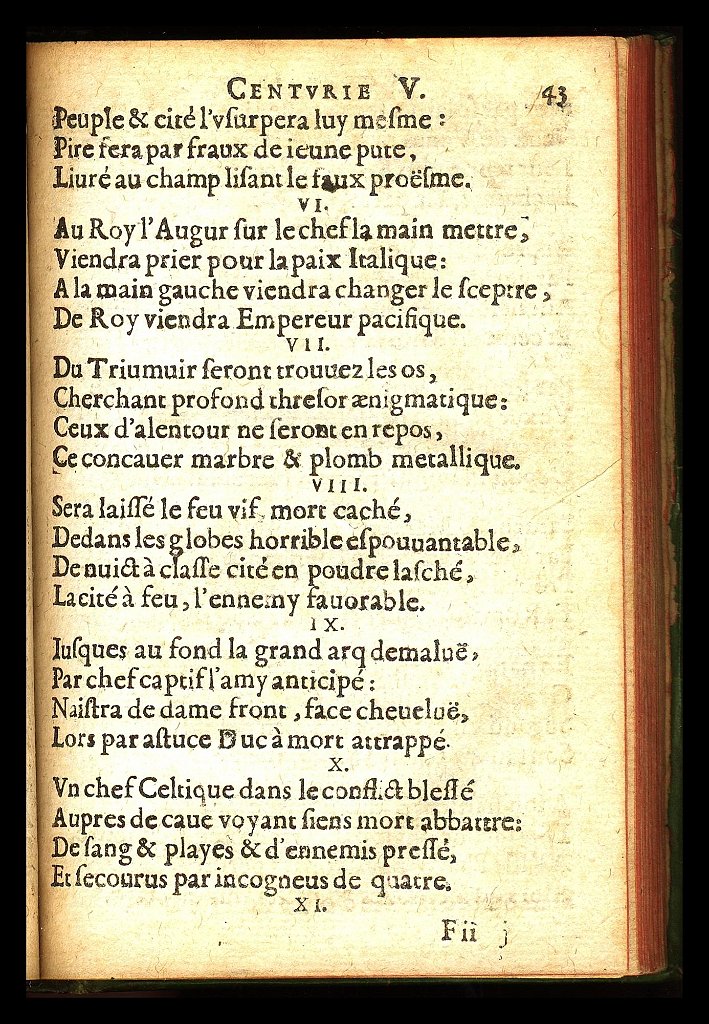 CENTVRIE V. 43
Peuple & cité l'vſurpera luy meſme :
Pire ſera par fraux de ieune pute,
Liuré au champ liſant le faux proëſme.
VI.
Au Roy l'Augur ſur le chef la main mettre,
Viendra prier pour la paix Italique:
A la main gauche viendra changer le ſceptre,
De Roy viendra Empereur pacifique.
VII.
Du Triumuir ſeront trouuez les os,
Cherchant profond threſor ænigmatique:
Ceux d'alentour ne ſeront en repos,
Ce concauer marbre & plomb metallique.
VIII.
Sera laiſſé le feu vif, mort caché,
Dedans les globes horrible eſpouuantable,
De nuict à claſſe cité en poudre laſché,
La cité à feu, l'ennemy fauorable.
IX.
Iuſques au fond la grand arq demaluë,
Par chef captif l'amy anticipé:
Naiſtra de dame front, face cheueluë,
Lors par aſtuce Duc à mort attrappé.
X.
Vn chef Celtique dans le conflict bleſſé
Aupres de caue voyant ſiens mort abbattre:
De ſang & playes & d'ennemis preſſé,
Et ſecourus par incogneus de quatre.
XI.
F ii j